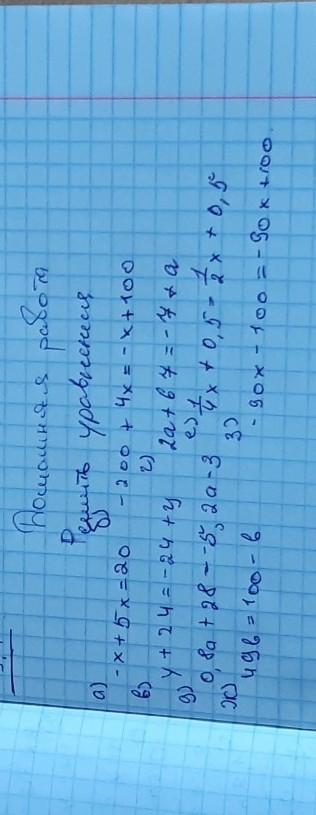 Домашняя работа
Решить уравнения
а) б)
-x+5x=20 -200+4x=-x+100
в) г)
y+24=-24+y 2a+67=-17+a
д) е)
0,8a+28=-5,2a-3 1/4x+0,5=1/2x+0,5
ж) з)
49b=100-b -90x-100=-90x+100